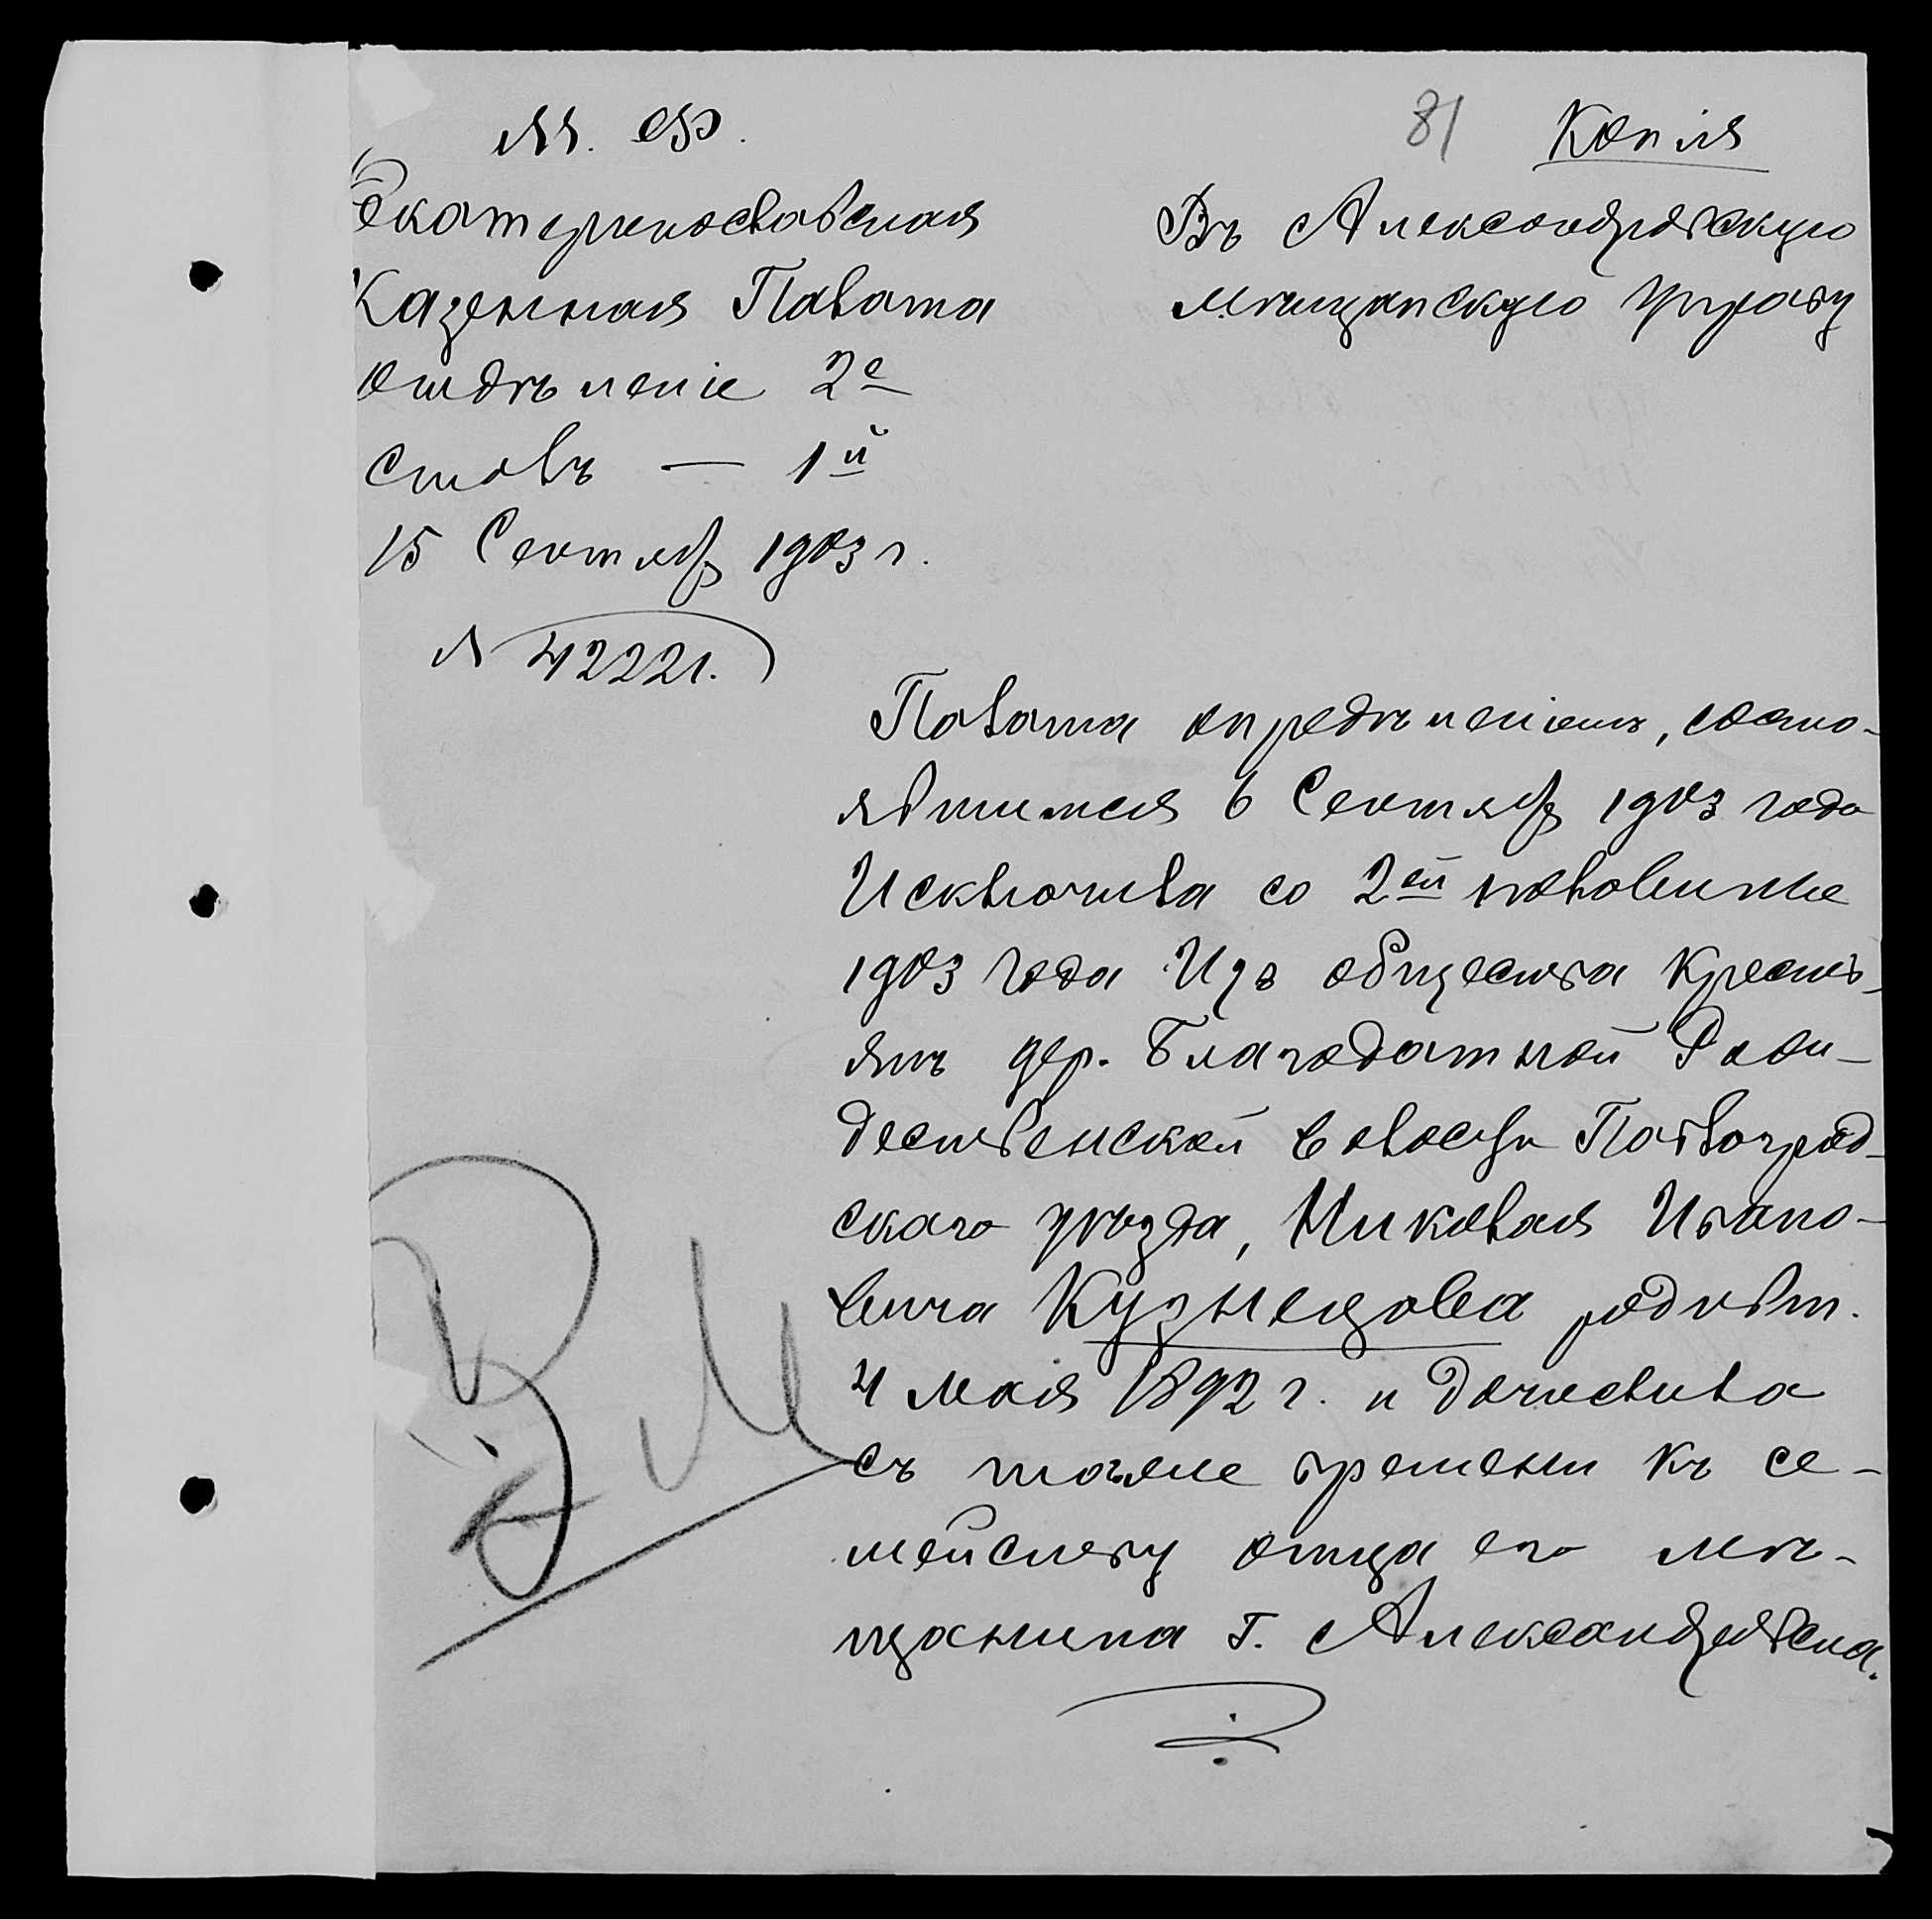 М. Ф.
81 Копія
Екатеринославская
Казенная Палата
отдѣленіе 2е
столъ — 1й
15 Сентябр 1903 г.
№ 42221.
Въ Александровскую
мѣщанскую управу
Палата опредѣленіемъ, состо-
явшимся 6 Сентябр 1903 года
Исключила со 2ей половины
1903 года Изъ общества Кресть-
янъ дер. Благодатной Рож-
дественской волости Павлоград-
скаго уѣзда, Николая Ивано-
вича Кузнецова родивш.
4 мая 1892 г. и дочислила
съ того же времени къ се-
мейству отца его мѣ-
щанина г. Александровска.